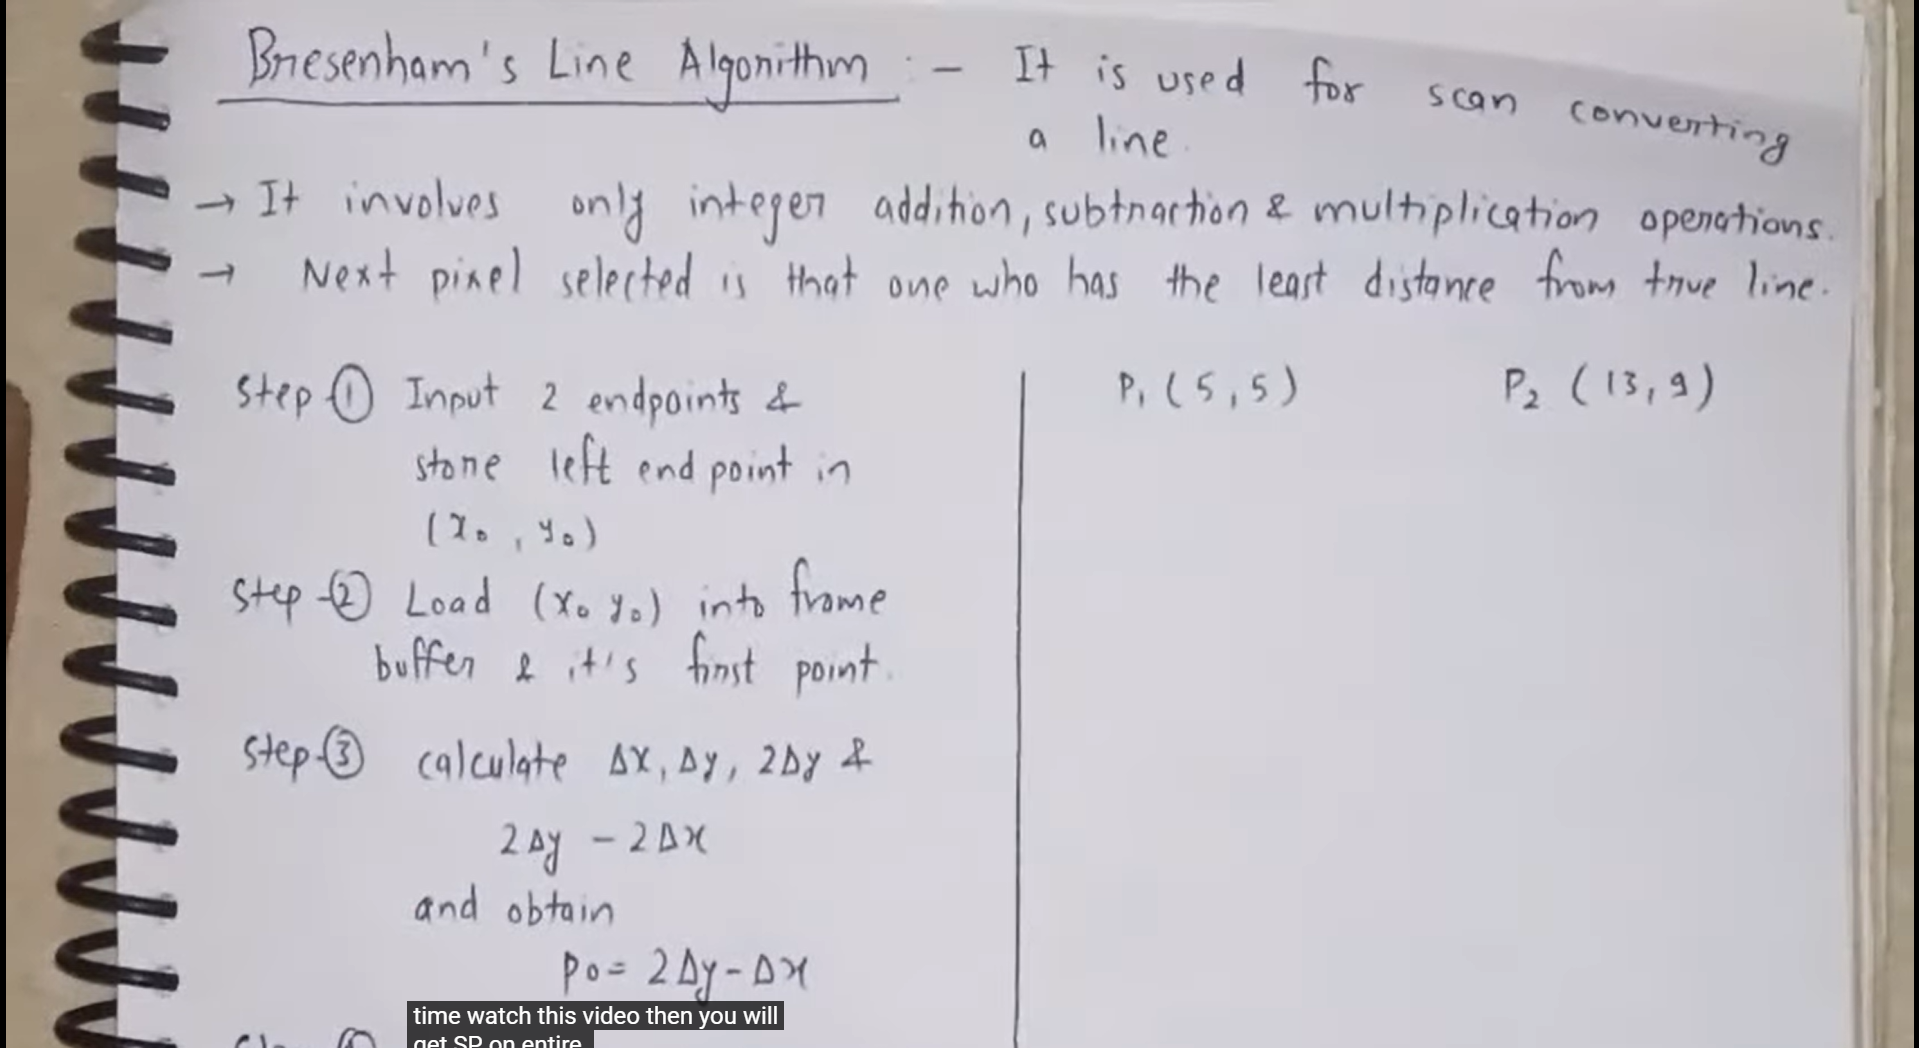 Bresenham's Line Algorithm :- It is used for scan converting
a line.
→ It involves only integer addition, subtraction & multiplication operations.
→ Next pixel selected is that one who has the least distance from true line.
Step-① Input 2 endpoints &
store left end point in
(x₀, y₀)
Step-② Load (x₀ y₀) into frame
buffer & it's first point.
Step-③ calculate Δx, Δy, 2Δy &
2Δy - 2Δx
and obtain
p₀ = 2Δy - Δx
P₁ (5,5) P₂ (13,9)
time watch this video then you will
get SP on entire